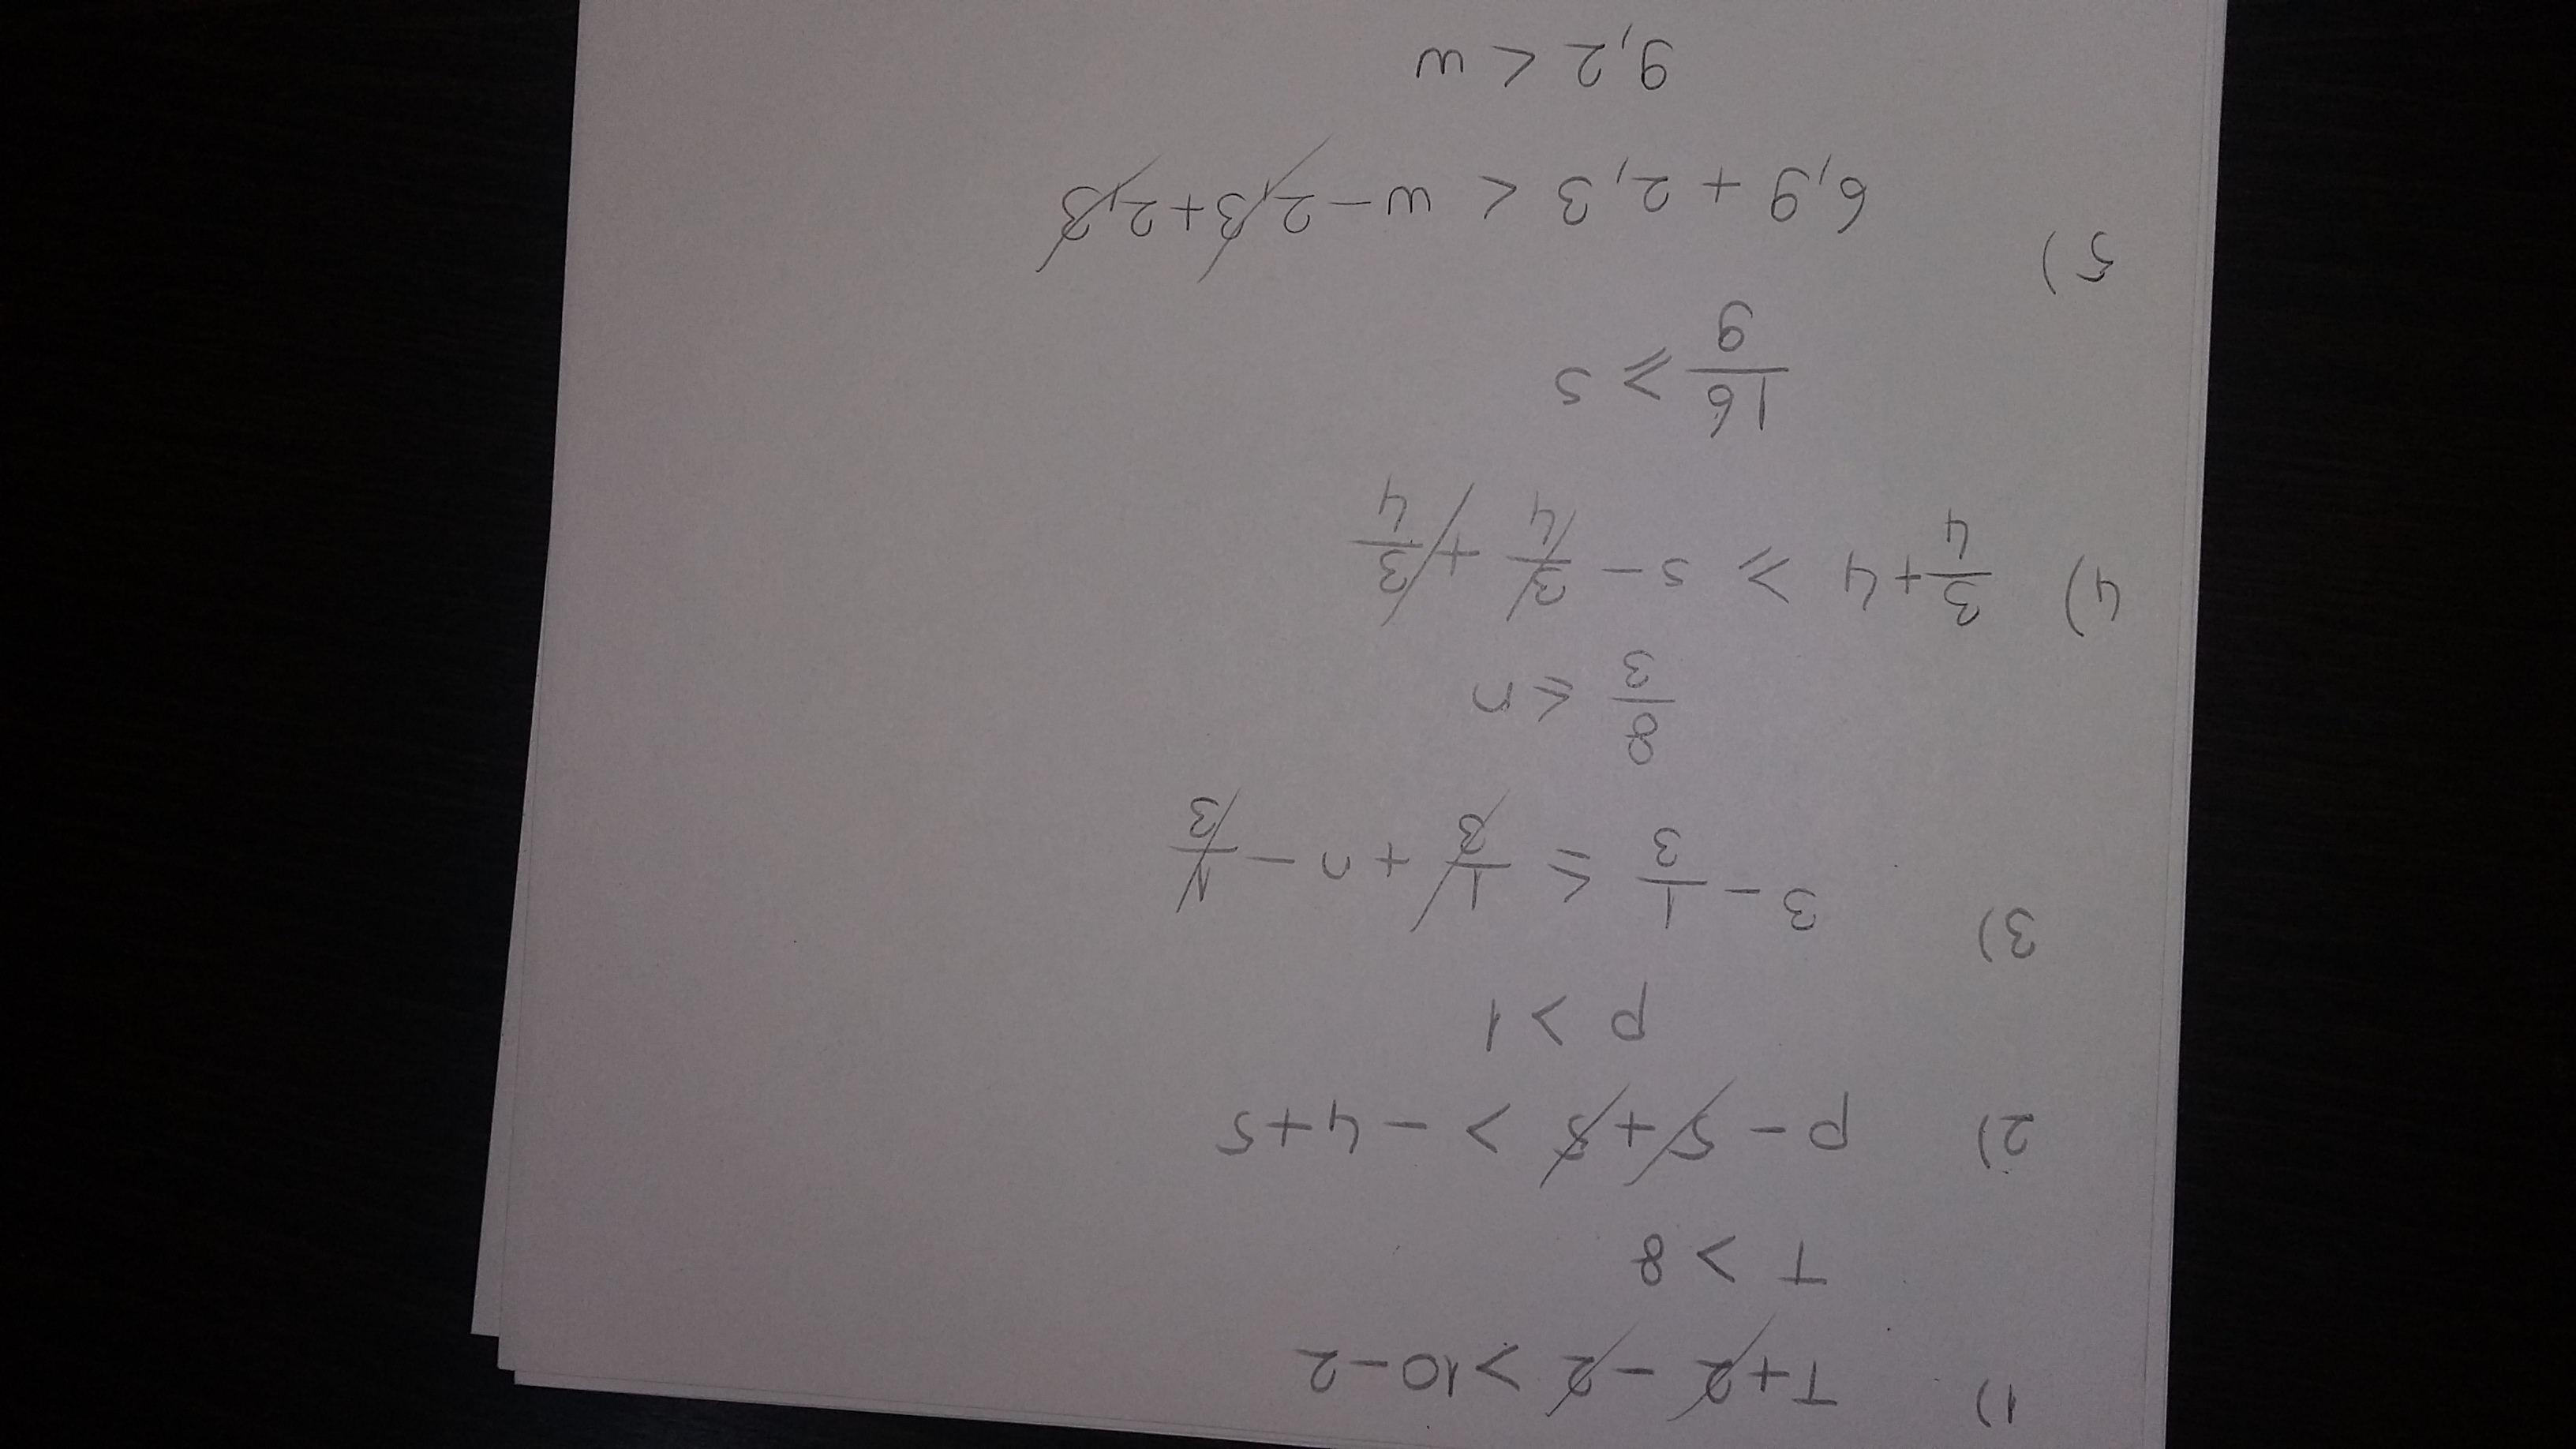 1) T+2 - 2 > 10 - 2
T > 8
2) p - 5 + 5 > - 4 + 5
p > 1
3) 3 - 1/3 ≤ 1/3 + n - 1/3
8/3 ≤ n
4) 3/4 + 4 ≥ s - 3/4 + 3/4
16/9 ≥ s
5) 6,9 + 2,3 < w - 2,3 + 2,3
9,2 < w